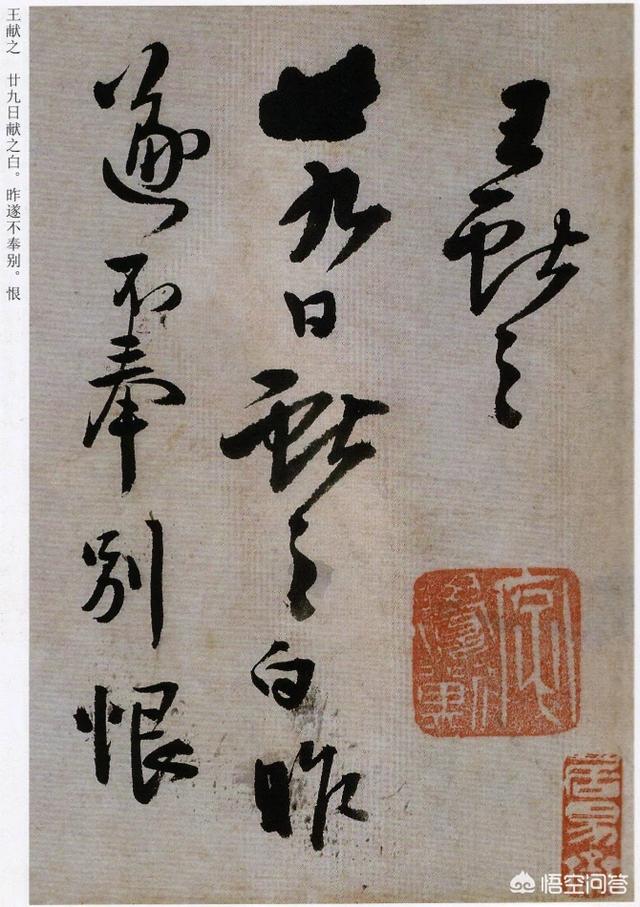 王献之 廿九日献之白。昨遂不奉别。恨
王獻之
廿九日獻之白昨
遂不奉別恨
悟空问答